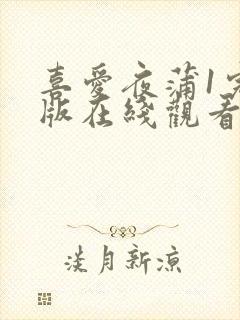 喜愛夜蒲1完
版在綫觀看
淡月新涼